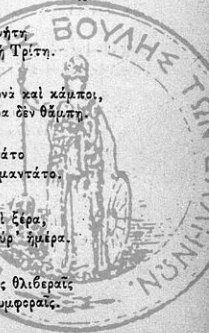 νήτη
ή Τρίτη.
νὰ καὶ κάμποι,
α δὲν θάμπη.
άτο
μαντάτο.
ὶ ξέρα,
ύρ' ἡμέρα.
ς θλιβεραῖς
υμφοραῖς.
ΒΟΥΛΗΣ ΤΩΝ
ΝΩΝ